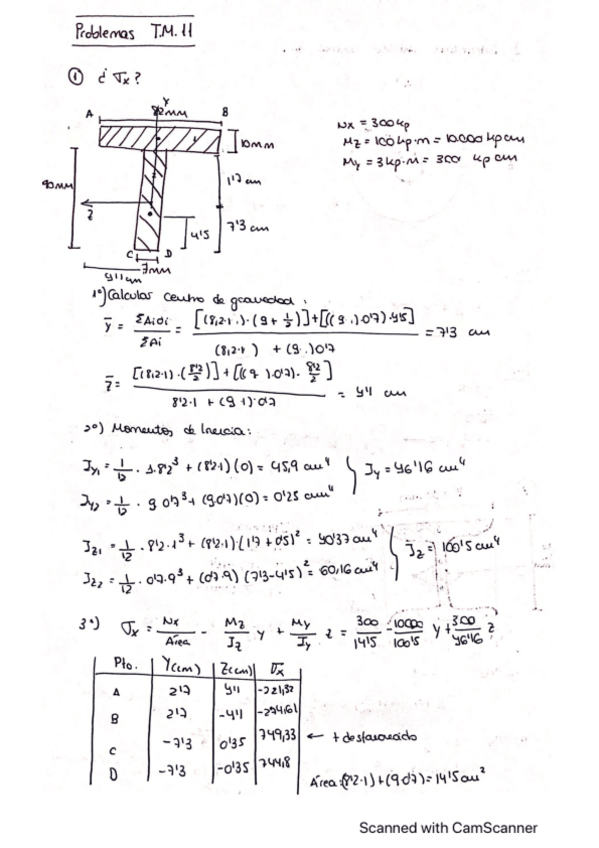 Problemas T.M. 11
① ¿ σx ?
Y
82mm
A
B
10mm
90mm
1'7 cm
Z
4'5
7'3 cm
C
D
7mm
4'1 cm
Nx = 300 kp
Mz = 100 kp·m = 10.000 kp cm
My = 3 kp·m = 300 kp cm
1º) Calcular centro de gravedad :
ȳ = ΣAidi / ΣAi = [(8,2·1.)·(9 + 1/2)] + [(9.)0'7)·4'5] / (8,2·1) + (9.)0'7 = 7'3 cm
z̄ = [(8,2·1)·(8'2/2)] + [(9.)0'7)·8'2/2] / 8'2·1 + (9·1)·0'7 = 4'1 cm
2º) Momentos de Inercia:
Jy₁ = 1/12 · 1·8'2³ + (8'2·1)(0) = 45,9 cm⁴
Jy = 46'16 cm⁴
Jy₂ = 1/12 · 9 0'7³ + (9·0'7)(0) = 0'25 cm⁴
Jz₁ = 1/12 · 8'2·1³ + (8'2·1)·(1'7 + 0'5)² = 40'37 cm⁴
Jz = 100'5 cm⁴
Jz₂ = 1/12 · 0'7·9³ + (0'7·9)(7'3-4'5)² = 60,16 cm⁴
3º) σx = Nx/Área - Mz/Jz y + My/Jy z = 300/14'5 - 10000/100'5 y + 300/46'16 z
Pto. Y(cm) Z(cm) σx
A 2'7 4'1 -221,32
B 2'7 -4'1 -274,61
C -7'3 0'35 749,33 ← + desfavorecido
D -7'3 -0'35 744,8
Área: (8'2·1) + (9·0'7) = 14'5 cm²
Scanned with CamScanner